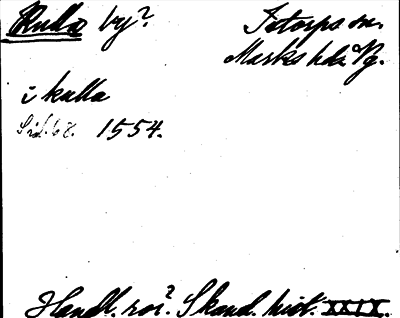 Kulla by?
Istorps sn.
Marks hd. Vg.
i kulla
Sid. 68. 1554.
Handl. rör? Skand. hist. XXIX.